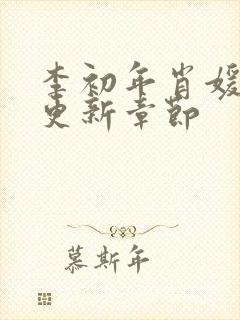 李初年肖媛
更新章節
慕斯年